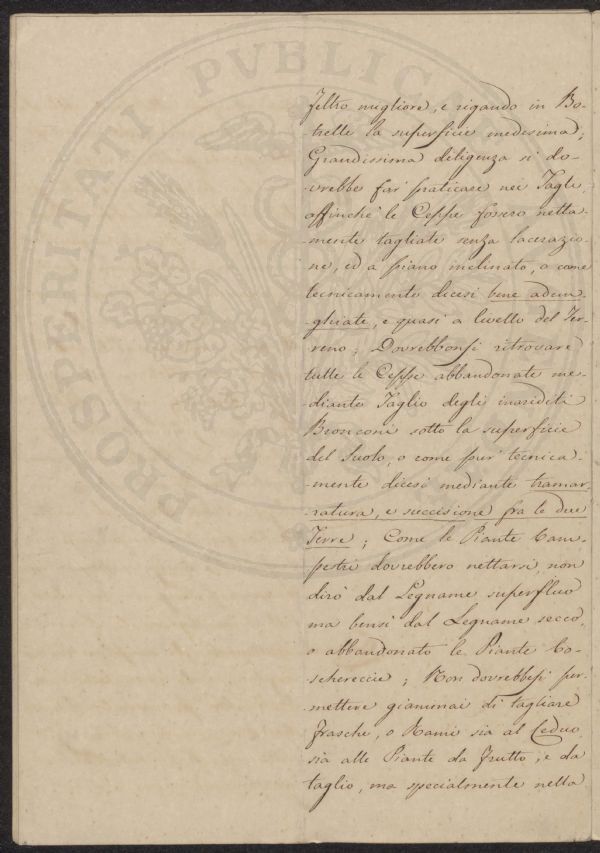 PROSPERITATI PVBLIC
feltro migliore, e rigando in Bo-
trelle la superficie medesima;
Grandissima diligenza si do-
vrebbe far praticare nei Tagli,
affinchè le Ceppe fossero netta-
mente tagliate senza lacerazio-
ne, ed a piano inclinato, o come
tecnicamente dicesi bene adun-
ghiate, e quasi a livello del Ter-
reno; Dovrebbonsi ritrovare
tutte le Ceppe abbandonate me-
diante Taglio degli inariditi
Bronconi sotto la superficie
del Suolo, o come pur tecnica-
mente dicesi mediante tramar-
ratura, e succisione fra le due
Terre; Come le Piante Cam-
pestri dovrebbero nettarsi, non
dirò dal Legname superfluo
ma bensì dal Legname secco,
o abbandonato le Piante Bo-
schereccie; Non dovrebbesi per-
mettere giammai di tagliare
Frasche, o Rami sia al Ceduo,
sia alle Piante da Frutto, e da
taglio, ma specialmente nella